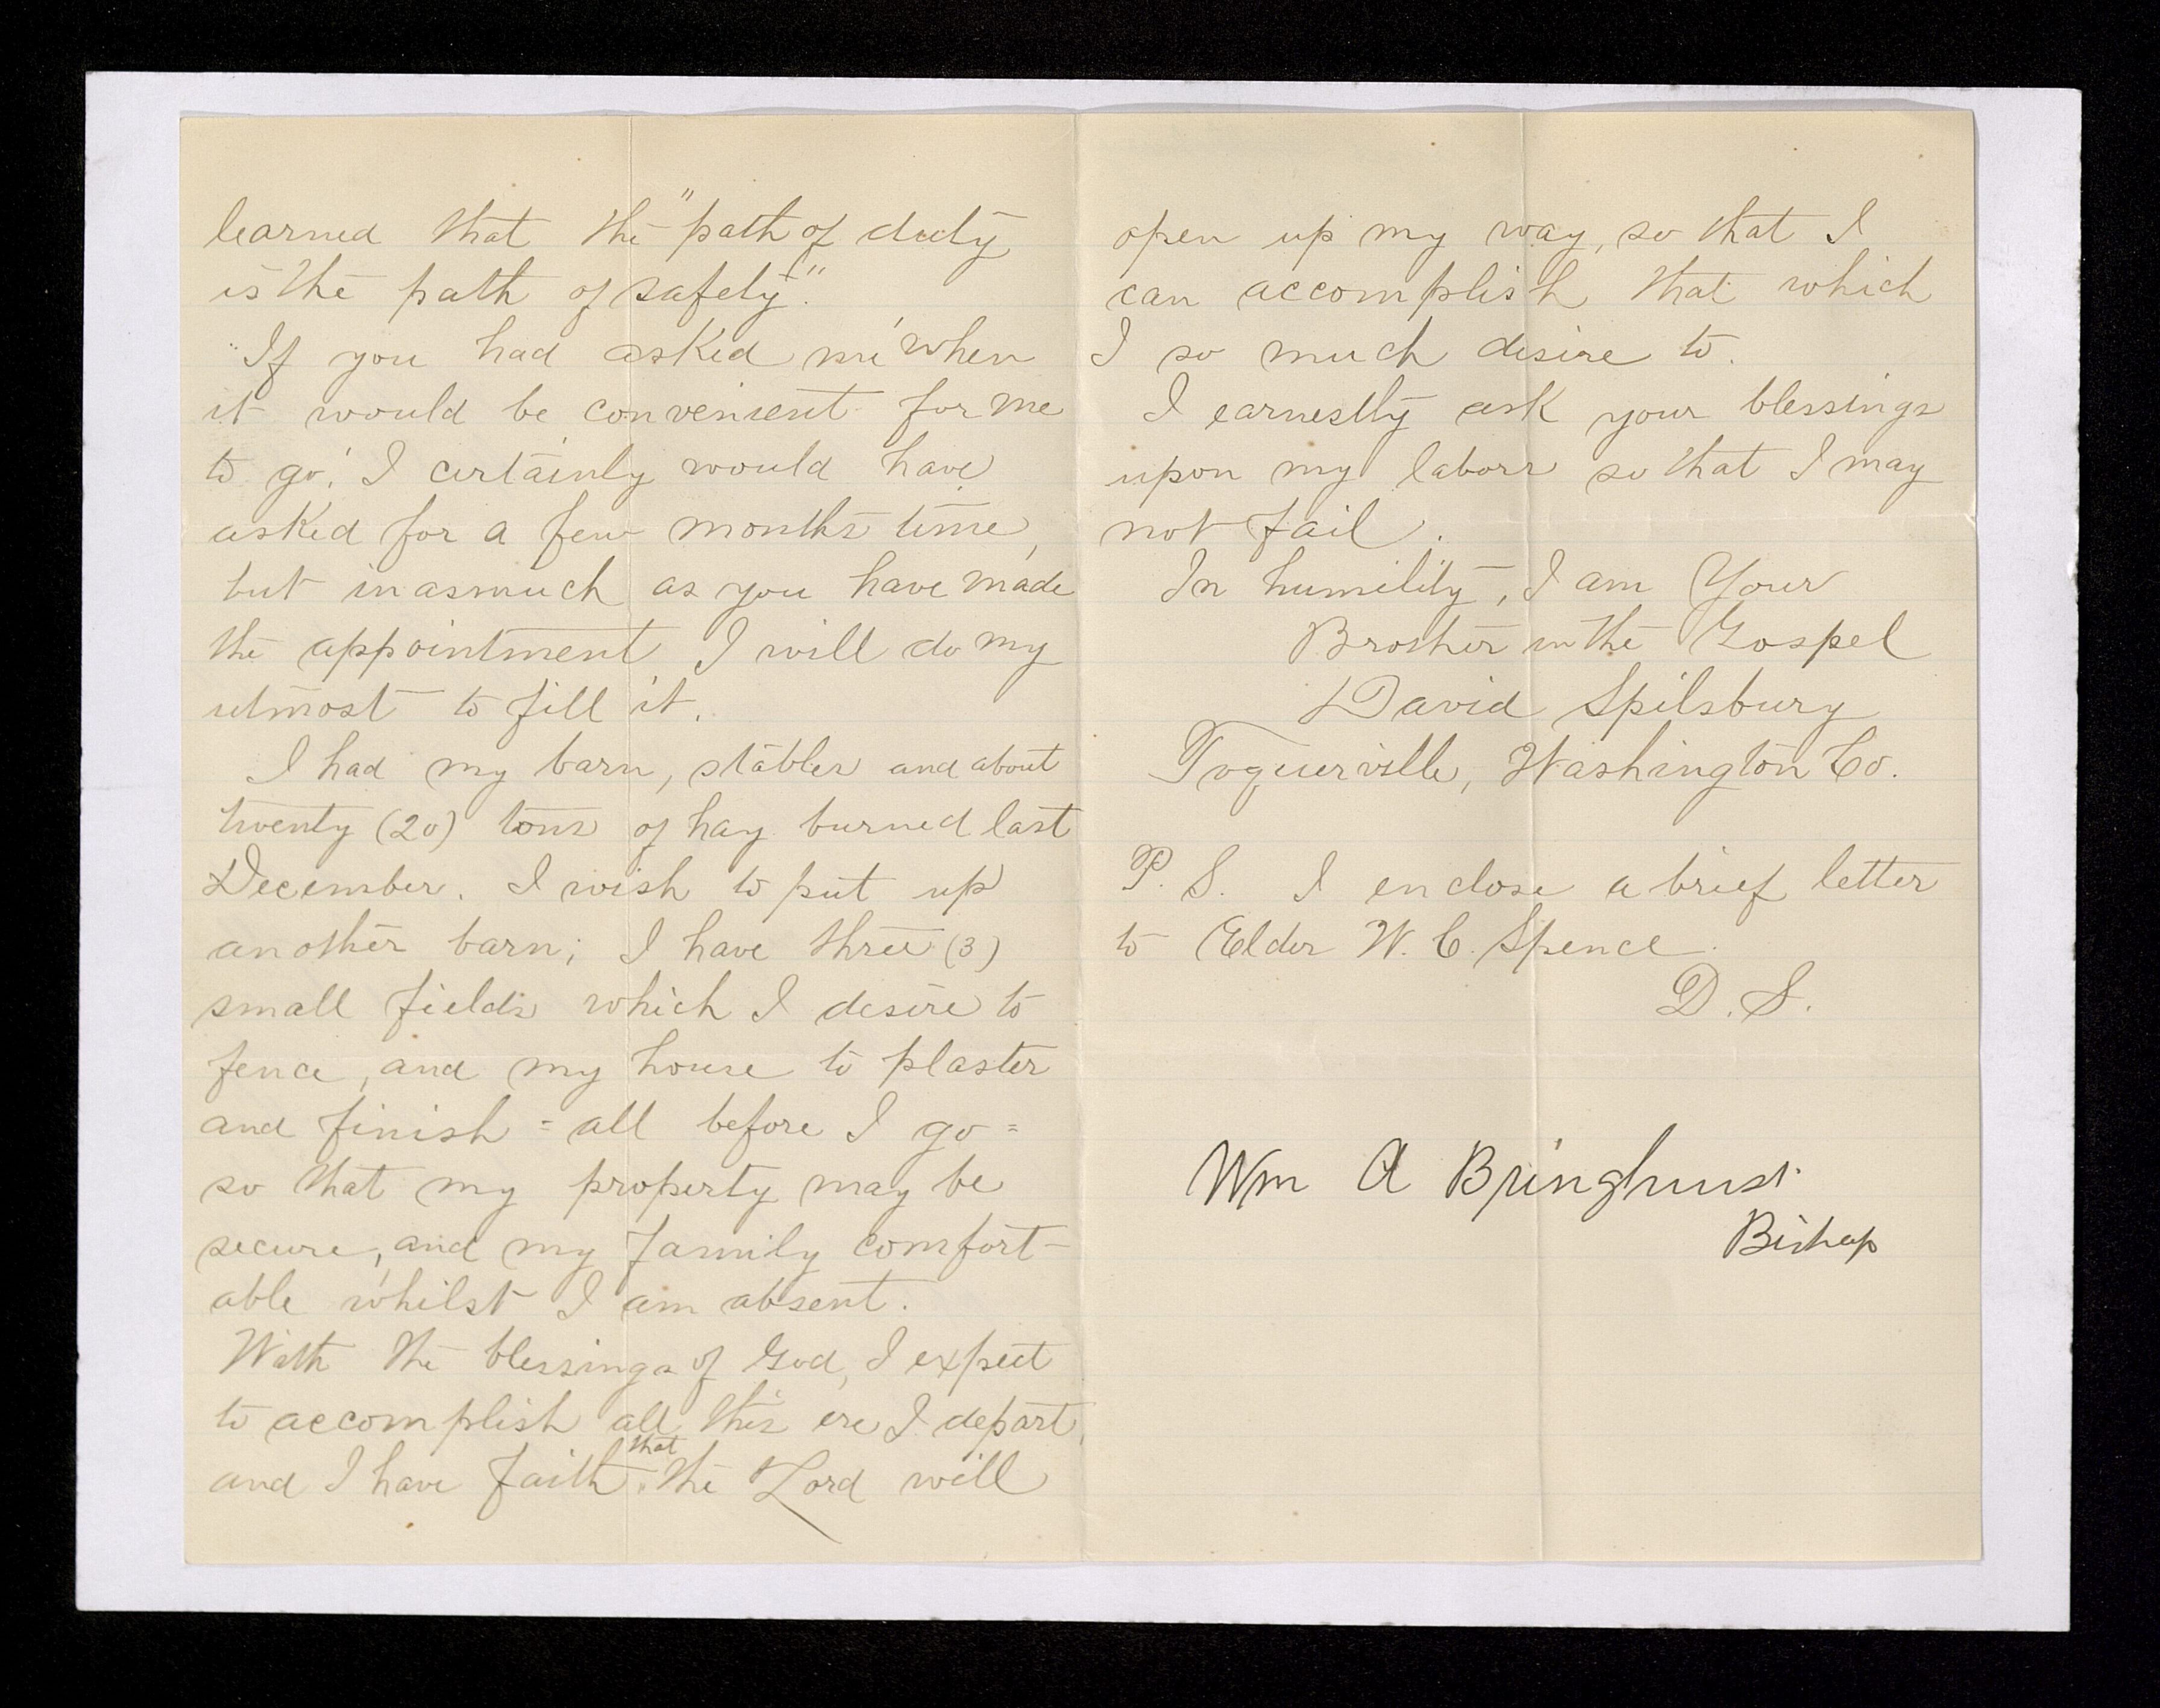 learned that the "path of duty
is the path of safety."
If you had asked me 'when
it would be convenient for me
to go,' I certainly would have
asked for a few months time,
but inasmuch as you have made
the appointment I will do my
utmost to fill it.
I had my barn, stables and about
twenty (20) tons of hay burned last
December. I wish to put up
another barn; I have three (3)
small fields which I desire to
fence, and my house to plaster
and finish = all before I go =
so that my property may be
secure, and my family comfort-
able whilst I am absent.
With the blessings of God, I expect
to accomplish all this ere I depart,
and I have faith that the Lord will
open up my way, so that I
can accomplish that which
I so much desire to.
I earnestly ask your blessings
upon my labors so that I may
not fail.
In humility, I am Your
Brother in the Gospel
David Spilsbury
Toquerville, Washington Co.
P. S. I enclose a brief letter
to Elder W. C. Spence.
D. S.
Wm A Bringhurst
Bishop